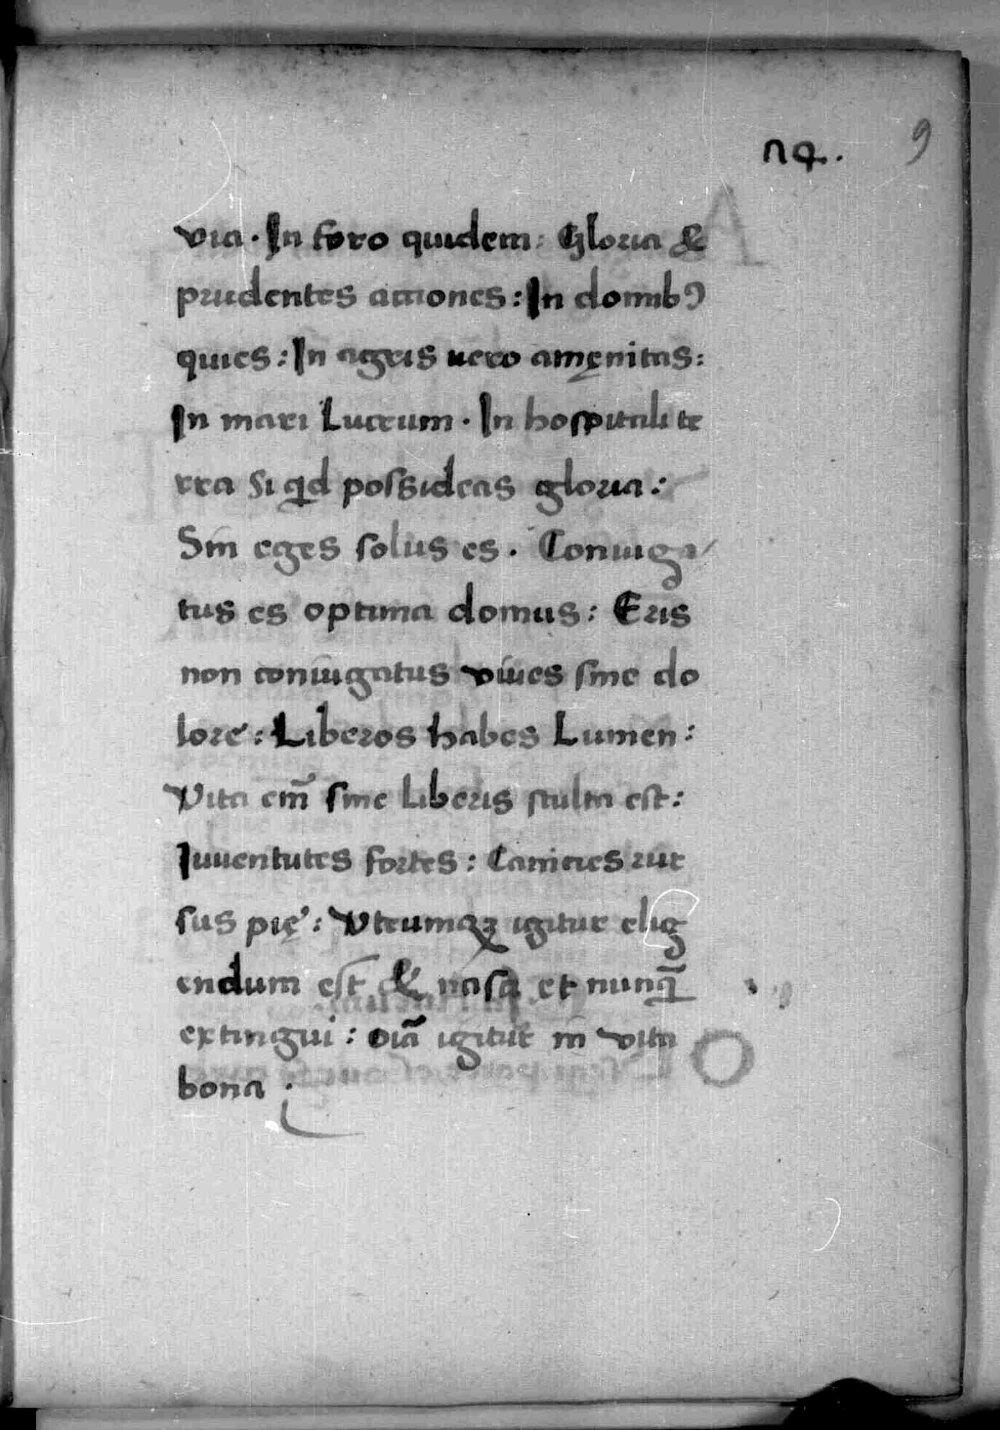 9
via · In foro quidem : Gloria &
prudentes actiones : In domibꝰ
quies : In agris uero amęnitas :
In mari Lucrum · In hospitali te
rra Si qd possideas gloria :
Sin eges solus es . Coniuga
tus es optima domus : Eris
non coniugatus viues sine do
lore : Liberos habes Lumen :
Vita em̄ sine liberis stulta est :
Iuuentutes fortes : Canicies rur
sus pię : Vtrumqꝫ igitur elig
endum est & nasci et nunq̄
extingui : oīa igitur in vita
bona :